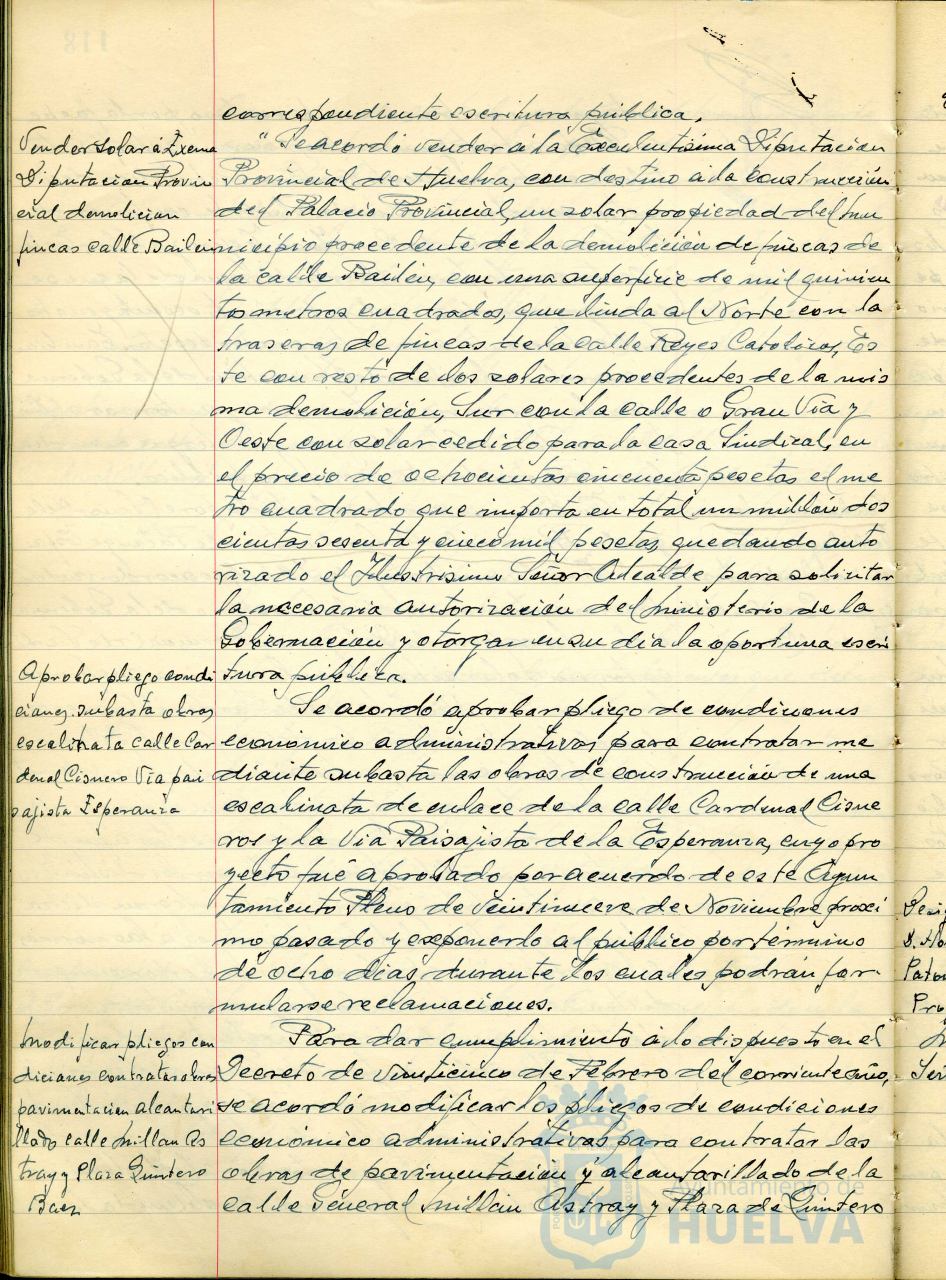 correspondiente escritura pública.
Vender solar á Exema
Diputacion Provin
cial demolicion
fincas calle Bailen
Se acordó vender á la Excelentísima Diputacion
Provincial de Huelva, con destino á la construcción
del Palacio Provincial, un solar propiedad del mu
nicipio procedente de la demolición de fincas de
la calle Bailén, con una superficie de mil quinien
tos metros cuadrados, que linda al Norte con la
traseras de fincas de la calle Reyes Catolicos, Es
te con resto de los solares procedentes de la mis
ma demolición, Sur con la calle o Gran Via y
Oeste con solar cedido para la casa Sindical, en
el precio de ochocientas cincuenta pesetas el me
tro cuadrado que importa en total un millón dos
cientas sesenta y cinco mil pesetas, quedando auto
rizado el Ilustrisimo Señor Alcalde para solicitar
la necesaria autorización del ministerio de la
Gobernación y otorgar en su dia la oportuna escri
tura pública.
Aprobar pliego condi
ciones subasta obras
escalinata calle Car
denal Cisnero Via pai
sajista Esperanza
Se acordó aprobar pliego de condiciones
económico administrativas para contratar me
diante subasta las obras de construcción de una
escalinata de enlace de la calle Cardenal Cisne
ros y la Via Paisajista de la Esperanza, cuyo pro
yecto fué aprobado por acuerdo de este Ayun
tamiento Pleno de veintinueve de Noviembre proxi
mo pasado y exponerlo al público por término
de ocho dias durante los cuales podrán for
mularse reclamaciones.
Modificar pliegos con
diciones contratar obras
pavimentacion alcantari
llado calle Millan As
tray y Plaza Quintero
Baez
Para dar cumplimiento á lo dispuesto en el
Decreto de veinticinco de Febrero del corriente año,
se acordó modificar los pliegos de condiciones
económico administrativas para contratar las
obras de pavimentación y alcantarillado de la
calle General Millán Astray y Plaza de Quintero
Ayuntamiento de
HUELVA